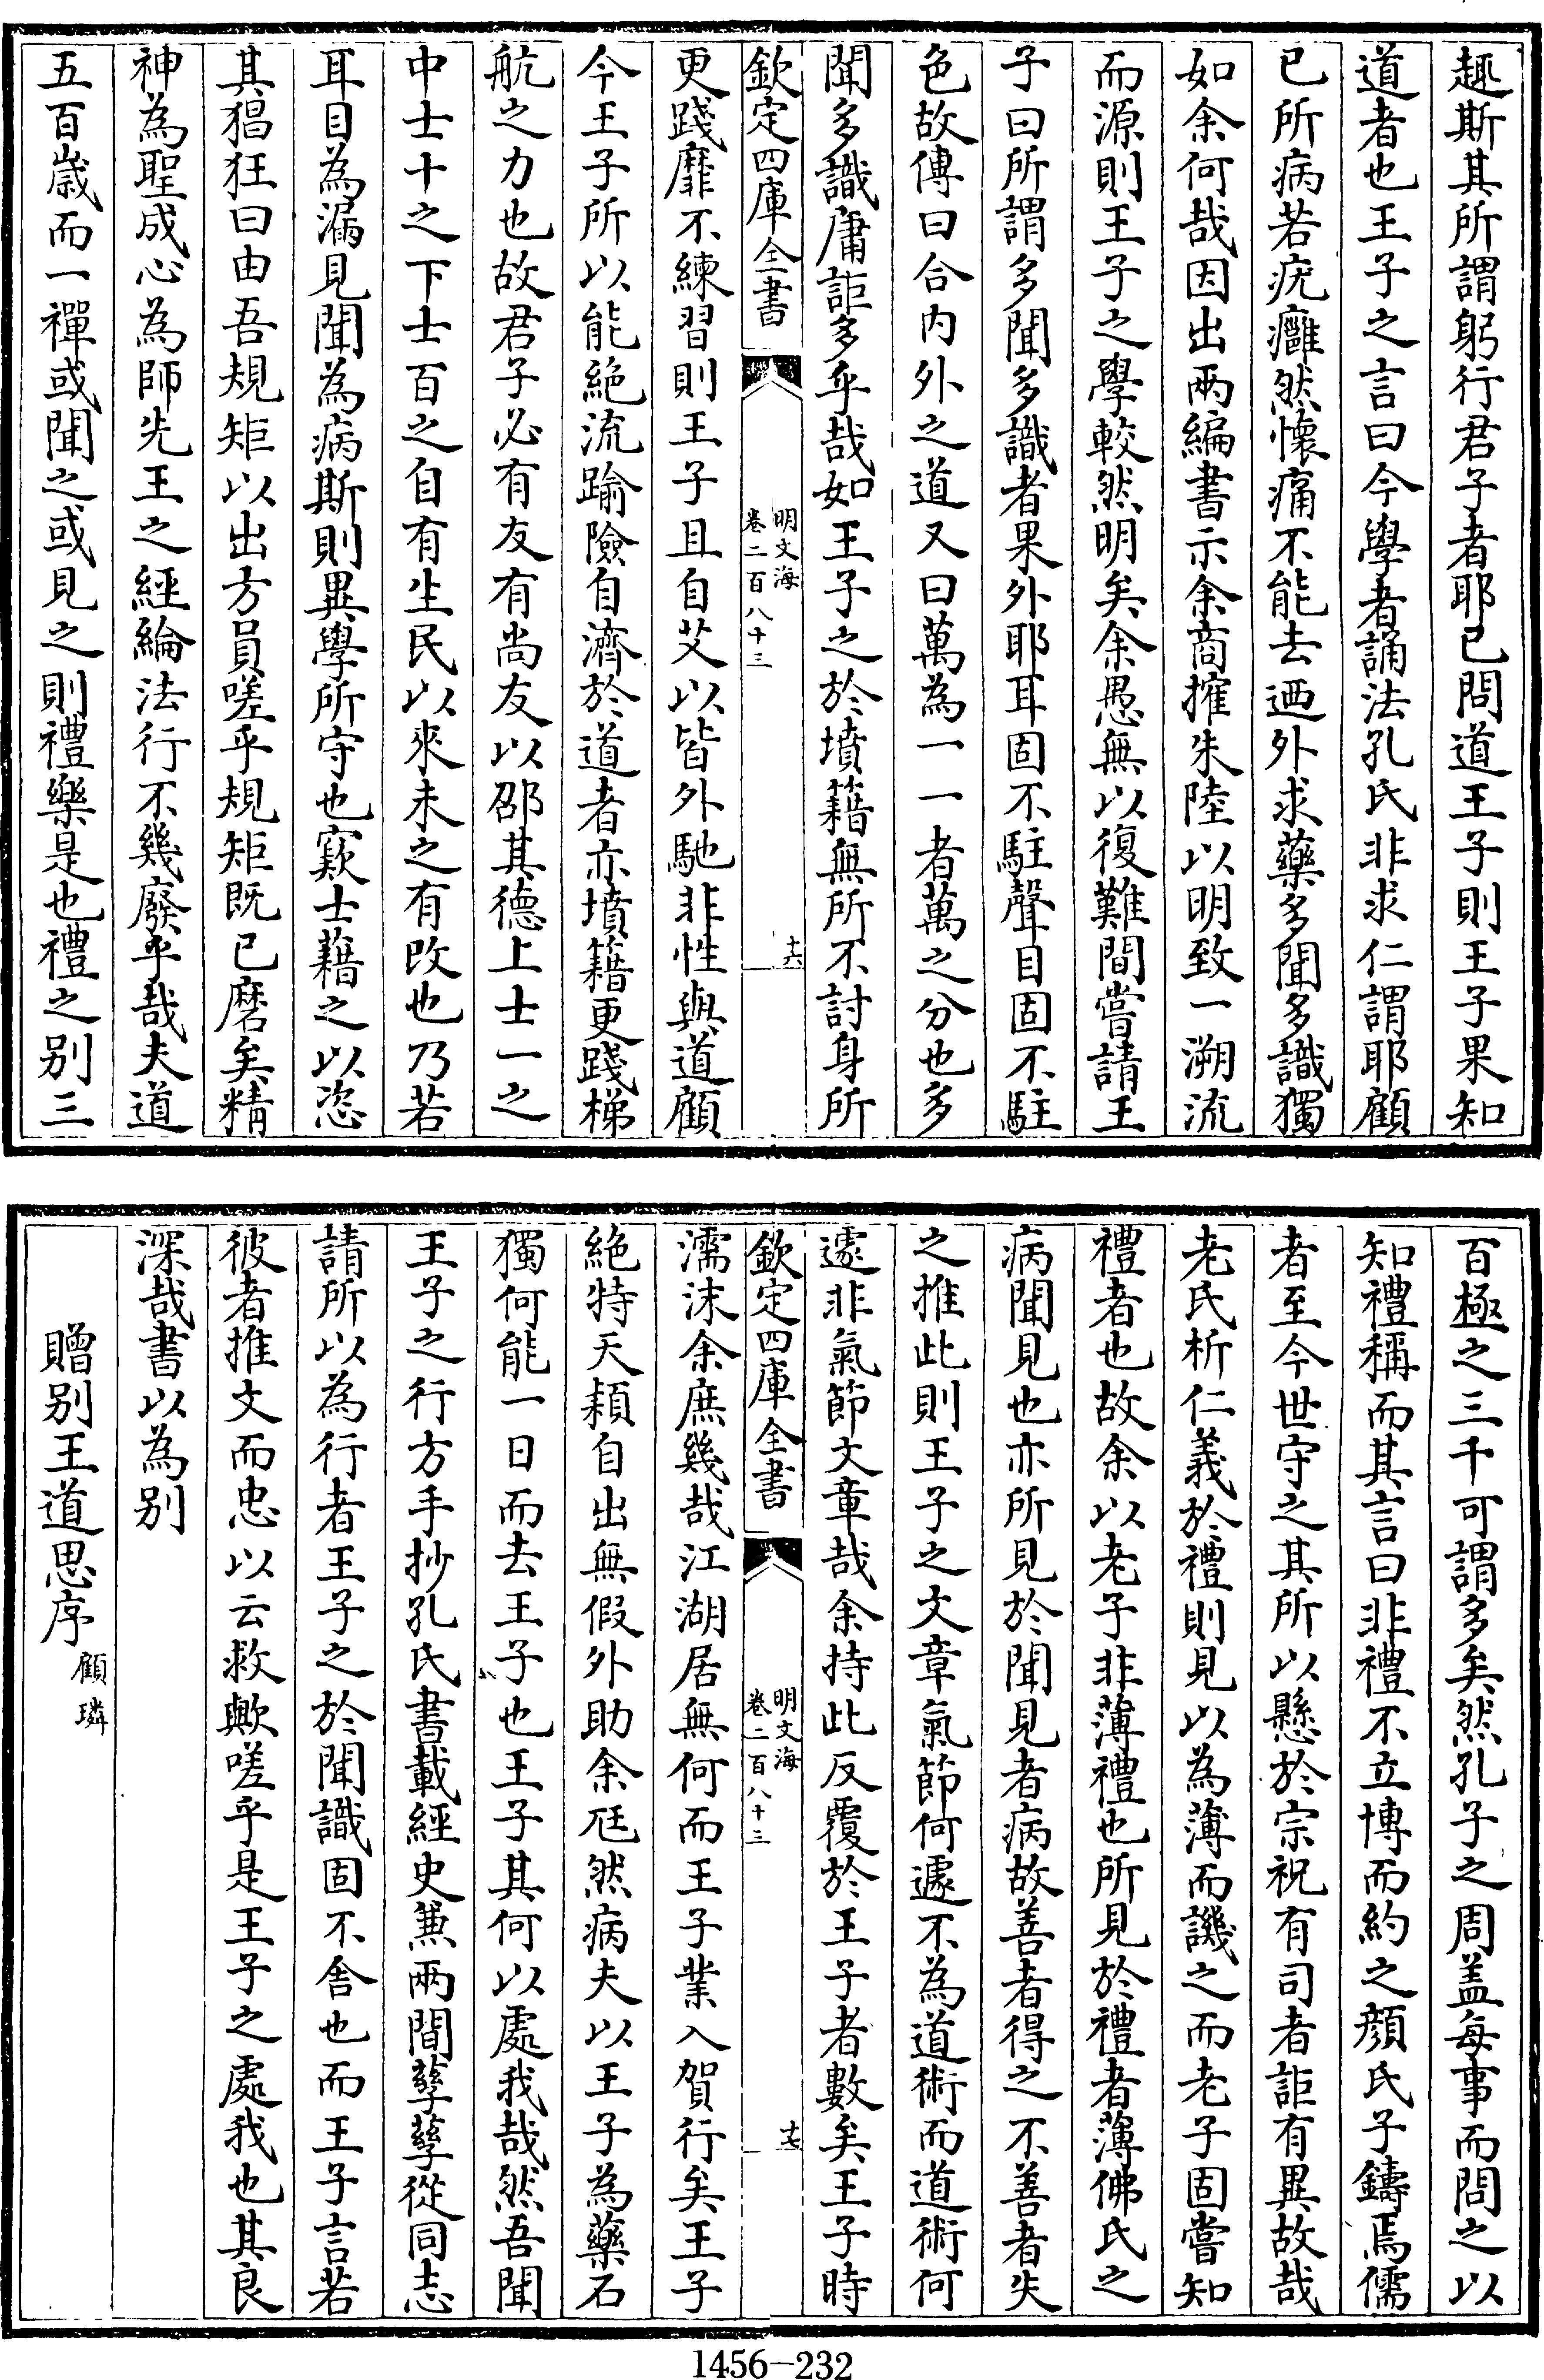 趣斯其所謂躬行君子者耶已問道王子則王子果知
道者也王子之言曰今學者誦法孔氏非求仁謂耶顧
已所病若疣癰然懷痛不能去迺外求藥多聞多識獨
如余何哉因出兩編書示余商搉朱陸以明致一溯流
而源則王子之學較然明矣余愚無以復難間嘗請王
子曰所謂多聞多識者果外耶耳固不駐聲目固不駐
色故傳曰合内外之道又曰萬為一一者萬之分也多
聞多識庸詎多乎哉如王子之於墳籍無所不討身所
欽定四庫全書
明文海
卷二百八十三
十六
更踐靡不練習則王子且自艾以皆外馳非性與道顧
今王子所以能絶流踰險自濟於道者亦墳籍更踐梯
航之力也故君子必有友有尚友以邵其德上士一之
中士十之下士百之自有生民以來未之有改也乃若
耳目為漏見聞為病斯則異學所守也窾士藉之以恣
其猖狂曰由吾規矩以出方員嗟乎規矩既已磨矣精
神為聖成心為師先王之經綸法行不幾廢乎哉夫道
五百歲而一禪或聞之或見之則禮樂是也禮之别三
百極之三千可謂多矣然孔子之周盖每事而問之以
知禮稱而其言曰非禮不立博而約之顔氏子鑄焉儒
者至今世守之其所以懸於宗祝有司者詎有異故哉
老氏析仁義於禮則見以為薄而譏之而老子固嘗知
禮者也故余以老子非薄禮也所見於禮者薄佛氏之
病聞見也亦所見於聞見者病故善者得之不善者失
之推此則王子之文章氣節何遽不為道術而道術何
遽非氣節文章哉余持此反覆於王子者數矣王子時
欽定四庫全書
明文海
卷二百八十三
十七
濡沫余庶幾哉江湖居無何而王子業入賀行矣王子
絶特天穎自出無假外助余尫然病夫以王子為藥石
獨何能一日而去王子也王子其何以處我哉然吾聞
王子之行方手抄孔氏書載經史兼兩間孳孳從同志
請所以為行者王子之於聞識固不舍也而王子言若
彼者推文而忠以云救歟嗟乎是王子之處我也其良
深哉書以為别
贈别王道思序 顧璘
1456-232